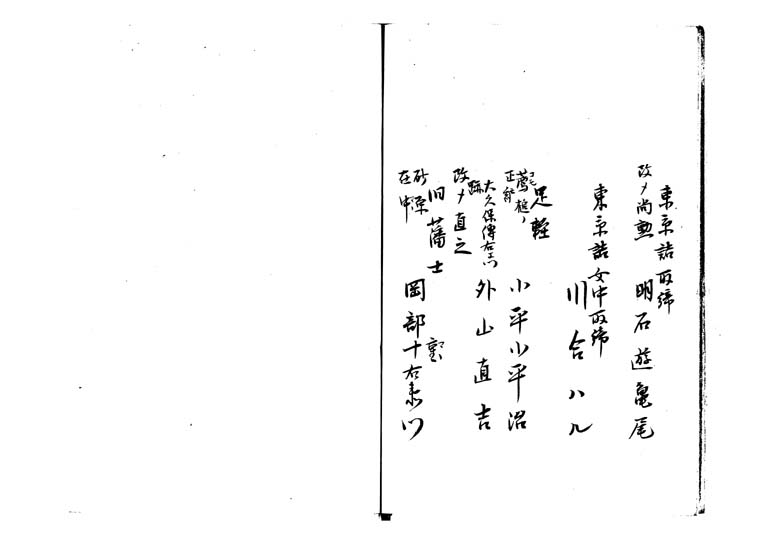 東京詰取締
改メ尚勲 明石遊亀尾
東京詰女中取締
川合ハル
足軽
小平小平治
正
大久保傳右エ門
跡
外山直吉
改メ直之
旧藩士
岡部十右衛門
在中